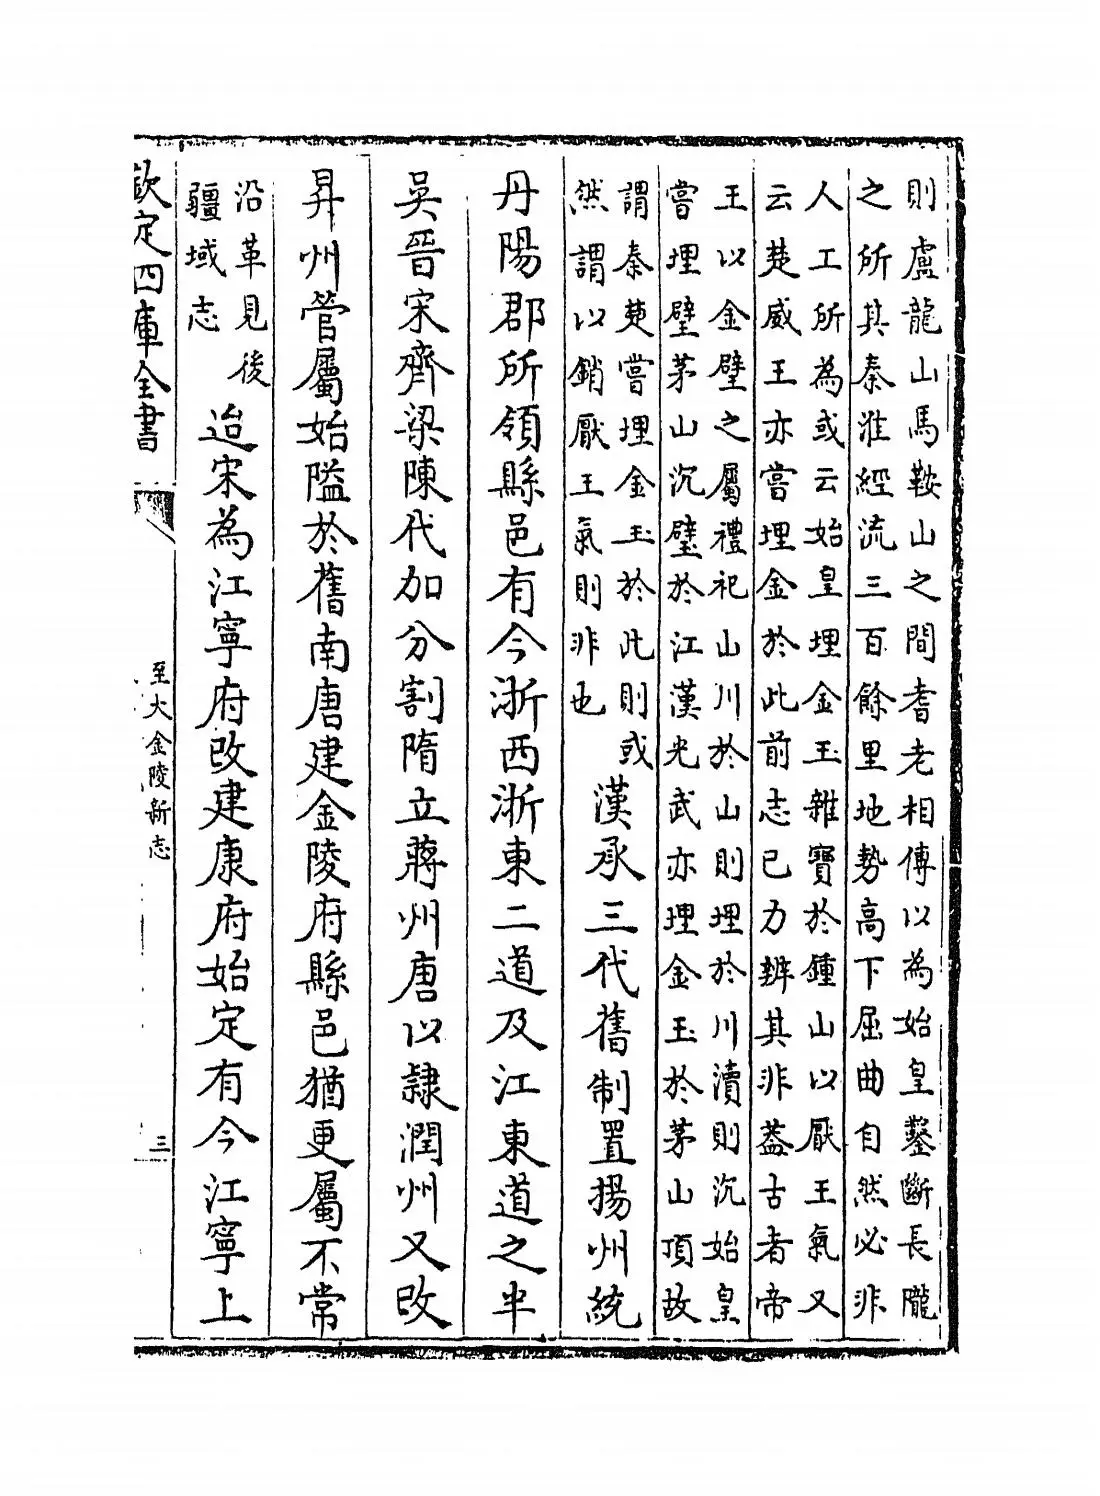 則盧龍山馬鞍山之間耆老相傳以為始皇鑿斷長隴
之所其秦淮經流三百餘里地勢高下屈曲自然必非
人工所為或云始皇埋金玉雜寶於鍾山以厭王氣又
云楚威王亦嘗埋金於此前志已力辨其非葢古者帝
王以金璧之屬禮祀山川於山則埋於川瀆則沉始皇
嘗埋璧茅山沉璧於江漢光武亦埋金玉於茅山頂故
謂秦楚嘗埋金玉於此則或
然謂以銷厭王氣則非也
漢承三代舊制置揚州統
丹陽郡所領縣邑有今浙西浙東二道及江東道之半
吳晉宋齊梁陳代加分割隋立蔣州唐以隸潤州又改
昇州管屬始隘於舊南唐建金陵府縣邑猶更屬不常
沿革見後
疆域志
迨宋為江寧府改建康府始定有今江寧上
欽定四庫全書
至大金陵新志
三